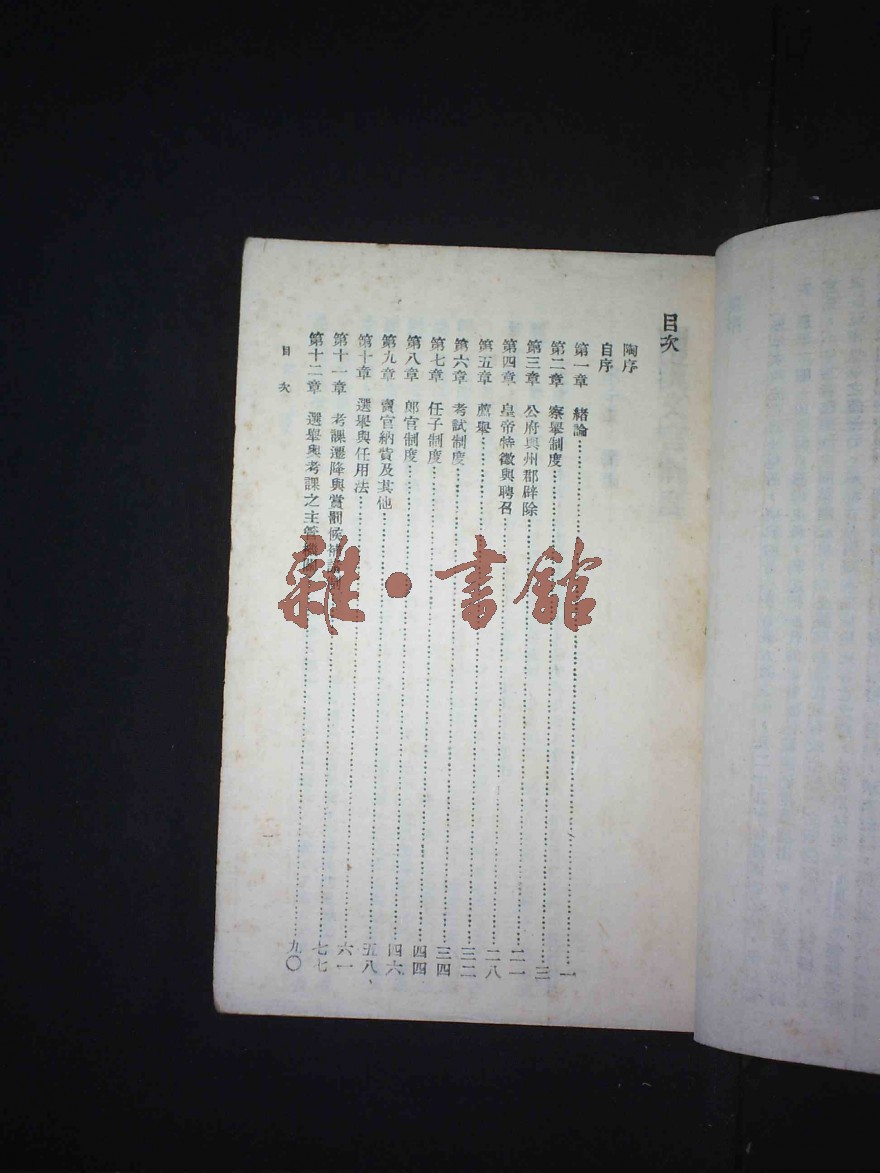 目次
陶序
自序
第一章 緒論……一
第二章 察舉制度……三
第三章 公府與州郡辟除……二一
第四章 皇帝特徵與聘召……二八
第五章 薦舉……三二
第六章 考試制度……三四
第七章 任子制度……四四
第八章 郎官制度……四六
第九章 賣官納貲及其他……五八
第十章 選舉與任用法……六一
第十一章 考課遷降與賞罰候補……七七
第十二章 選舉與考課之主管……九〇
目次
一
雜·書館